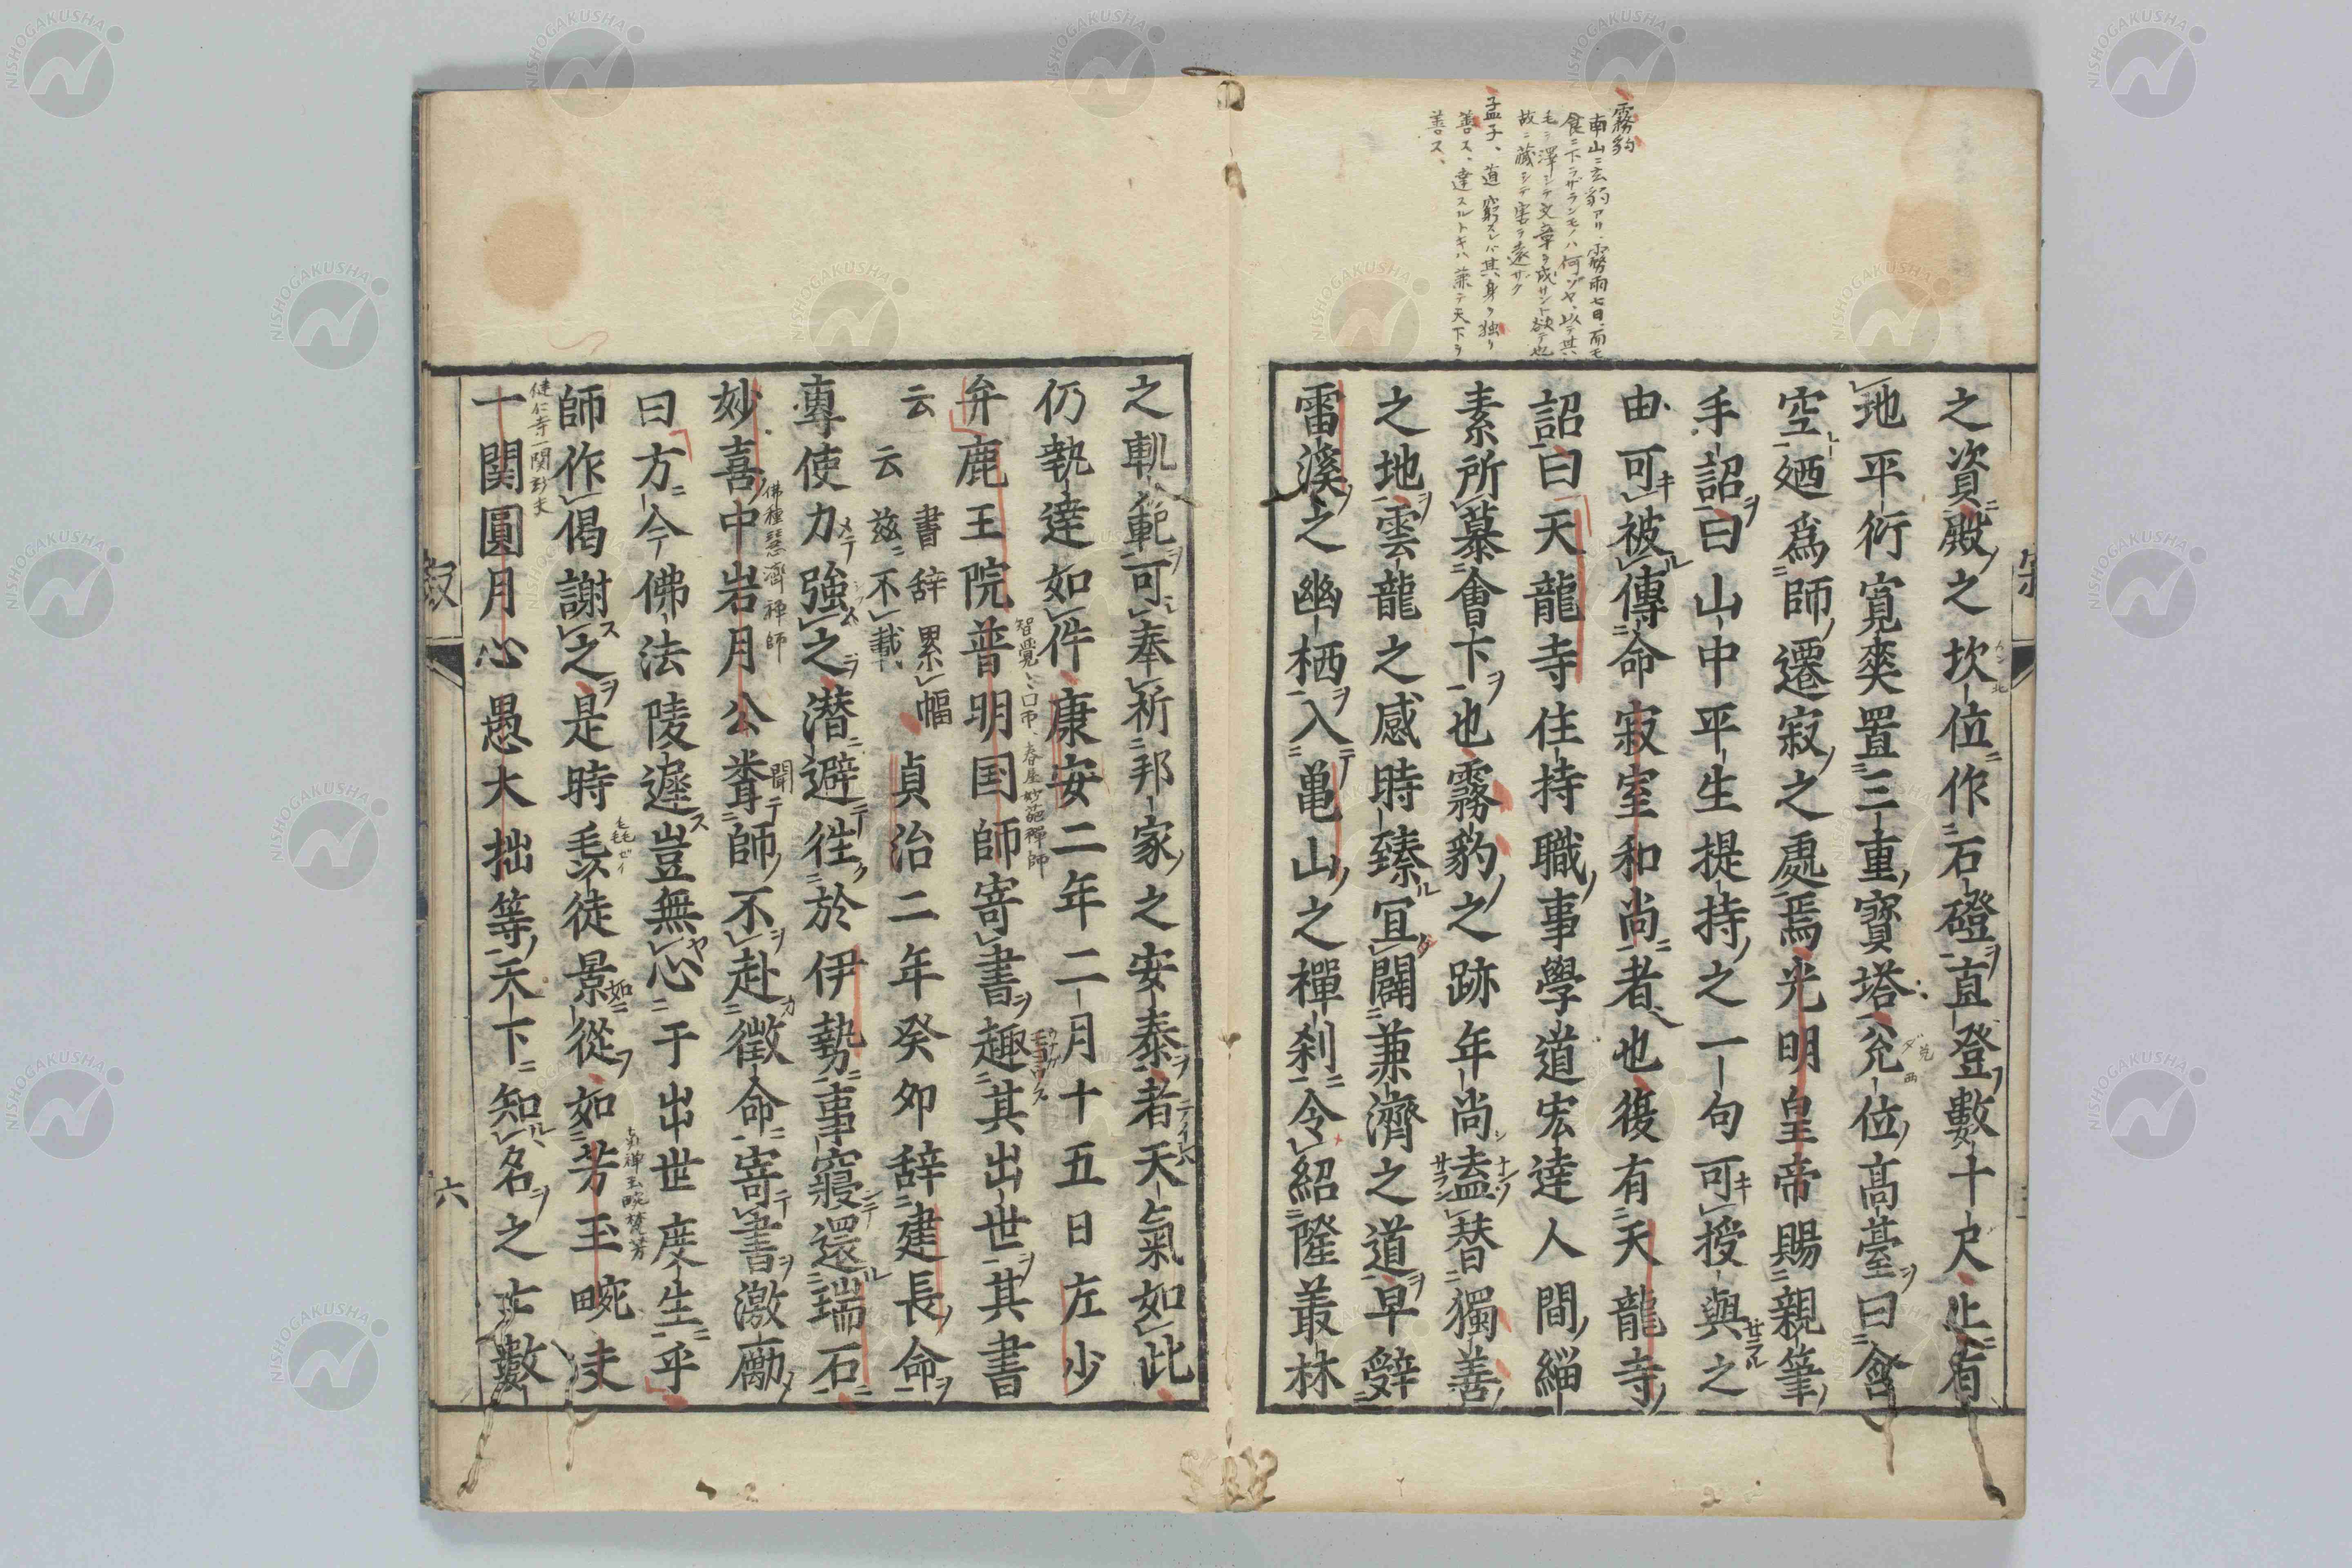 霧豹
南山ニ玄豹アリ、霧雨七日、而モ
食ニ下ラザランモノハ何ゾヤ、以テ其
毛ヲ澤シテ文章ヲ成サント欲テ也
故ニ藏シテ害ヲ遠ザク
孟子、道窮スレバ其身ヲ独リ
善ス、達スルトキハ兼テ天下ヲ
善ス、
之資殿之坎位作石磴直登數十尺止有
地平衍寛奕置三重寳塔兊位髙臺曰含
空廼為師遷寂之處焉光明皇帝賜親筆
手詔曰山中平生提持之一句可授與之
由可被傳命寂室和尚者也後有天龍寺
詔曰天龍寺住持職事學道宏達人間緇
素所慕會卞也霧豹之跡年尚盍替獨善
之地雲龍之感時臻宜闢兼濟之道早辭
雷溪之幽栖入亀山之禪刹令紹隆叢林
之軌範可奉祈邦家之安泰者天氣如此
仍執達如件康安二年二月十五日左少
弁鹿王院普明国師寄書趣其出世其書
云云書辞累幅兹不載貞治二年癸夘辞建長命
専使力強之潜避徃於伊勢事寢還瑞石
妙喜中岩月公聋師不赴徴命寄書激勵
曰方今佛法陵遲豈無心于出世度生乎
師作偈謝之是時毛徒景從如芳玉畹夫
一関圓月心愚大拙等天下知名之士數
智覺
春屋妙葩禪師
佛種慧濟禅師
建仁寺一関
聞
六
NISHOGAKUSHA